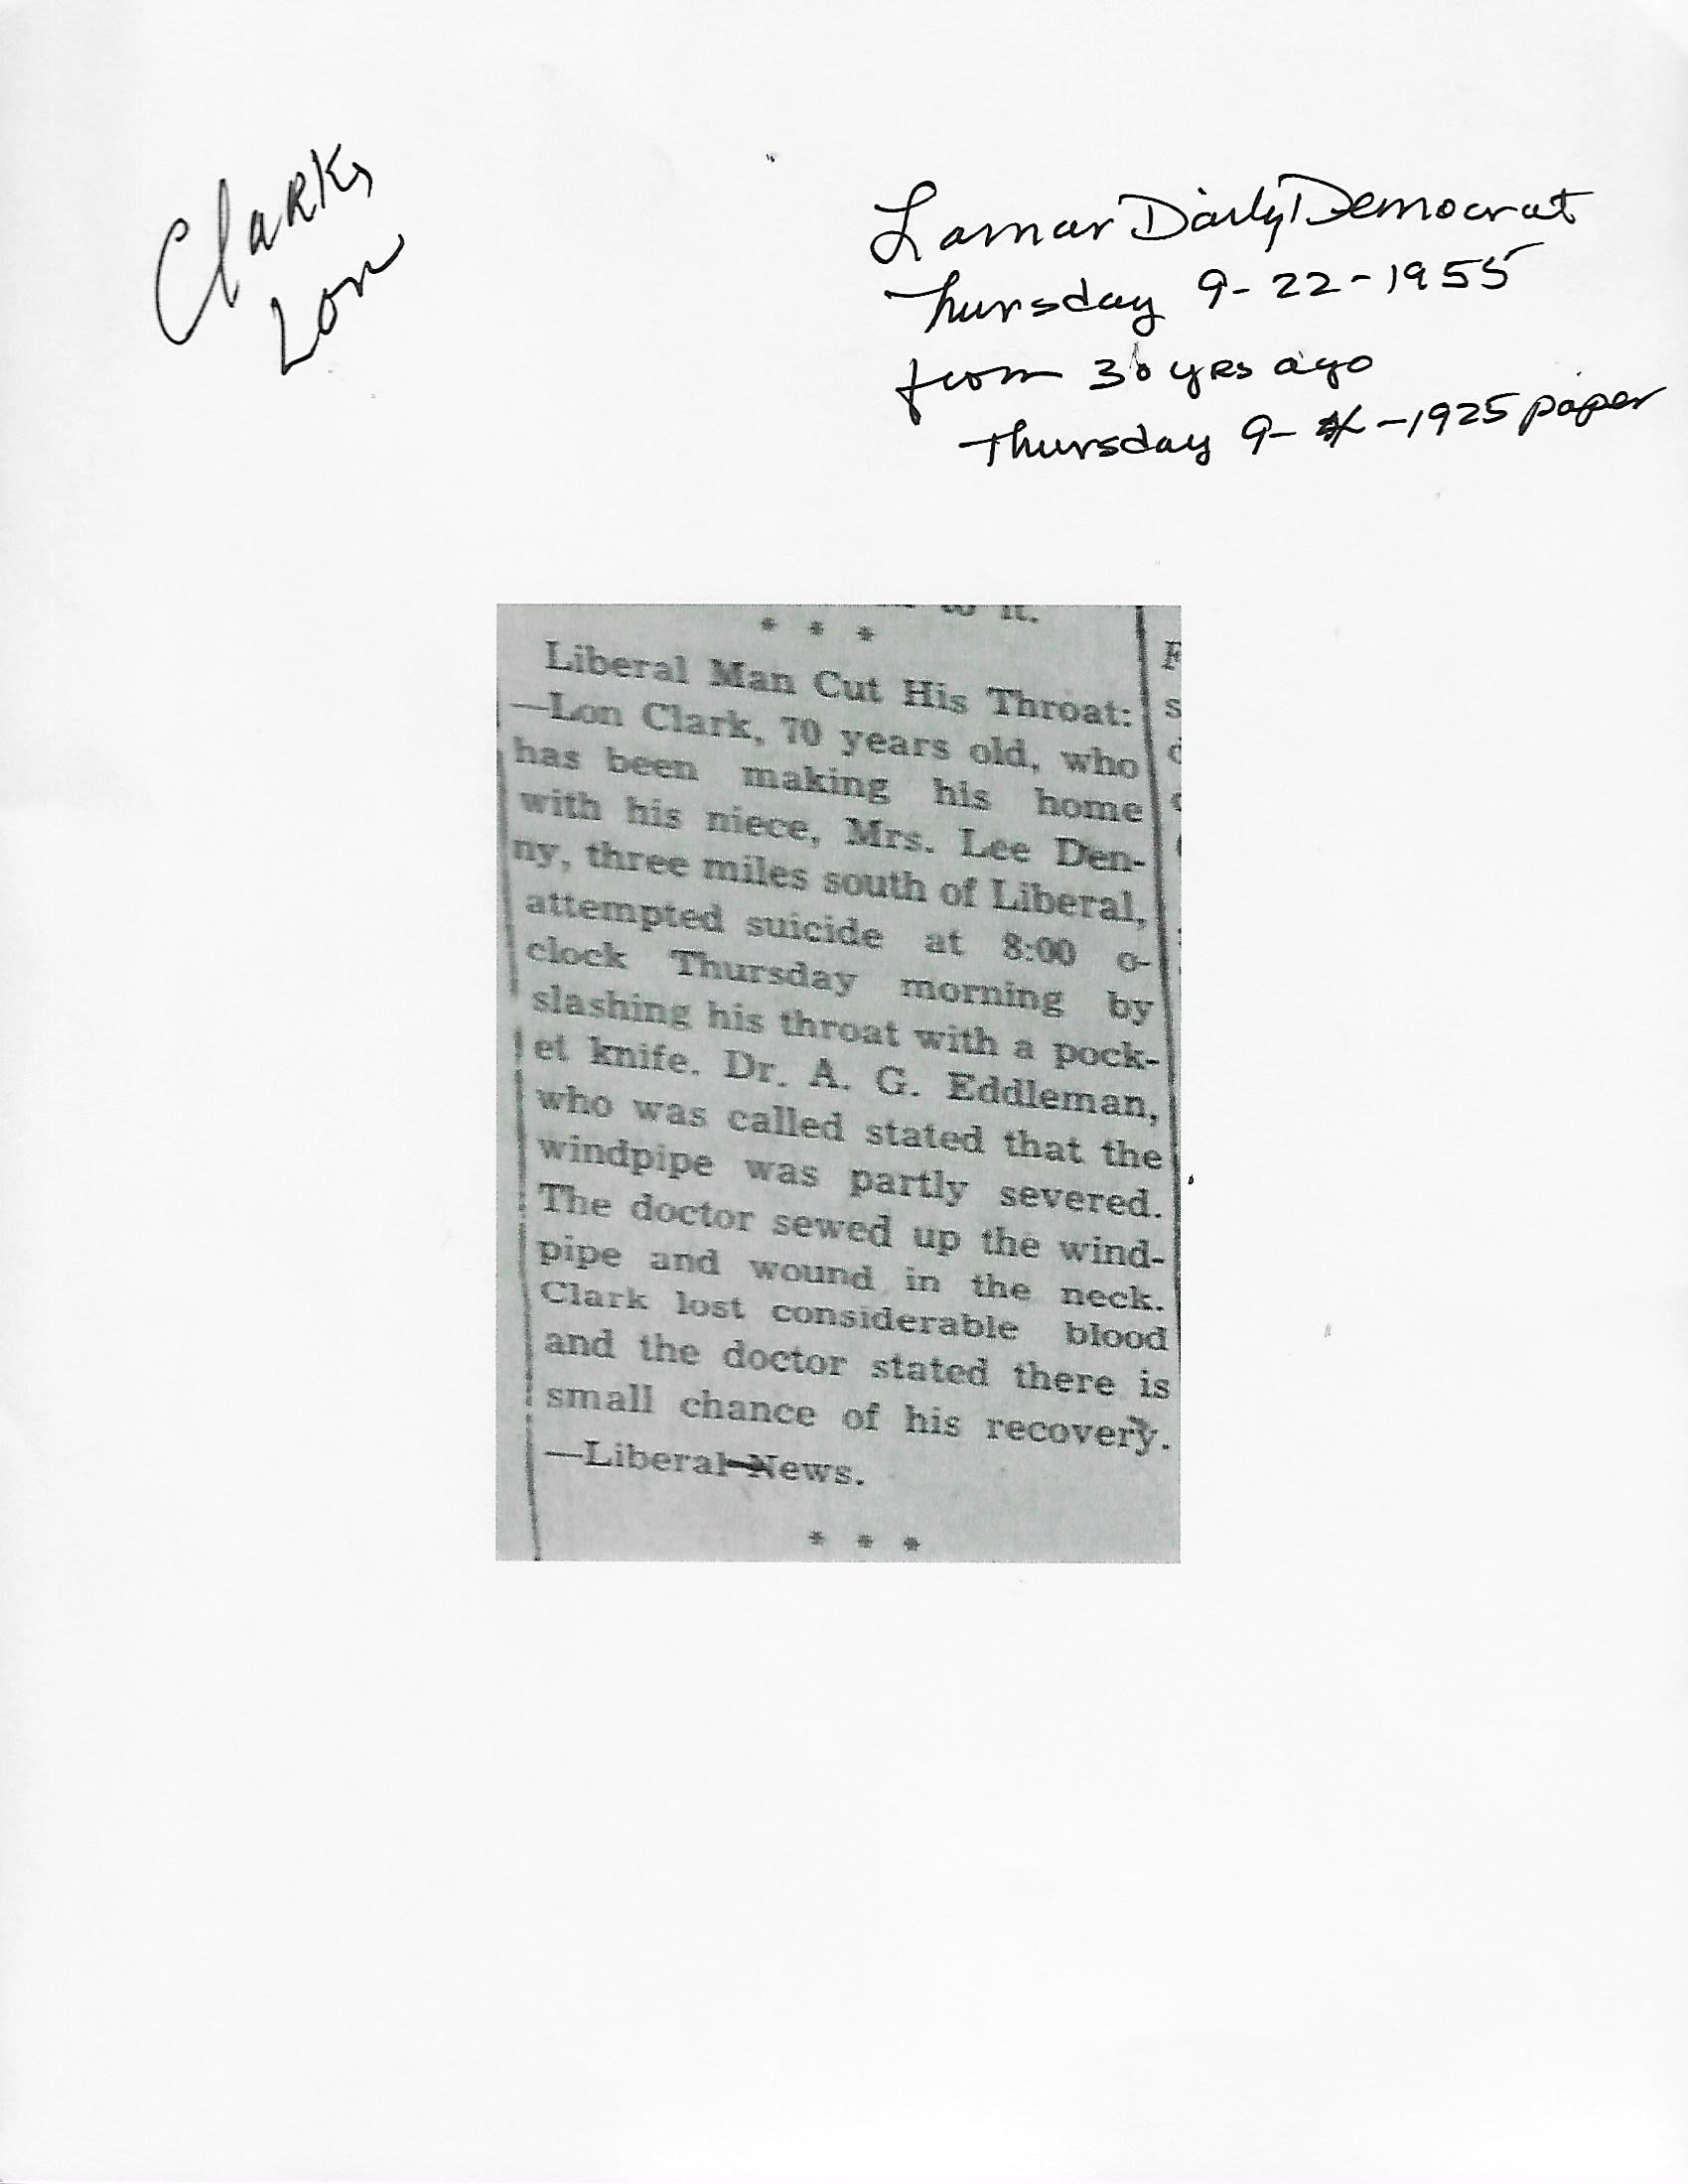 Clark,
Lon
Lamar Daily Democrat
Thursday 9-22-1955
from 30 yrs ago
Thursday 9- -1925 paper
to it.
* * *
Liberal Man Cut His Throat:
—Lon Clark, 70 years old, who
has been making his home
with his niece, Mrs. Lee Den-
ny, three miles south of Liberal,
attempted suicide at 8:00 o-
clock Thursday morning by
slashing his throat with a pock-
et knife. Dr. A. G. Eddleman,
who was called stated that the
windpipe was partly severed.
The doctor sewed up the wind-
pipe and wound in the neck.
Clark lost considerable blood
and the doctor stated there is
small chance of his recovery.
—Liberal News.
* * *